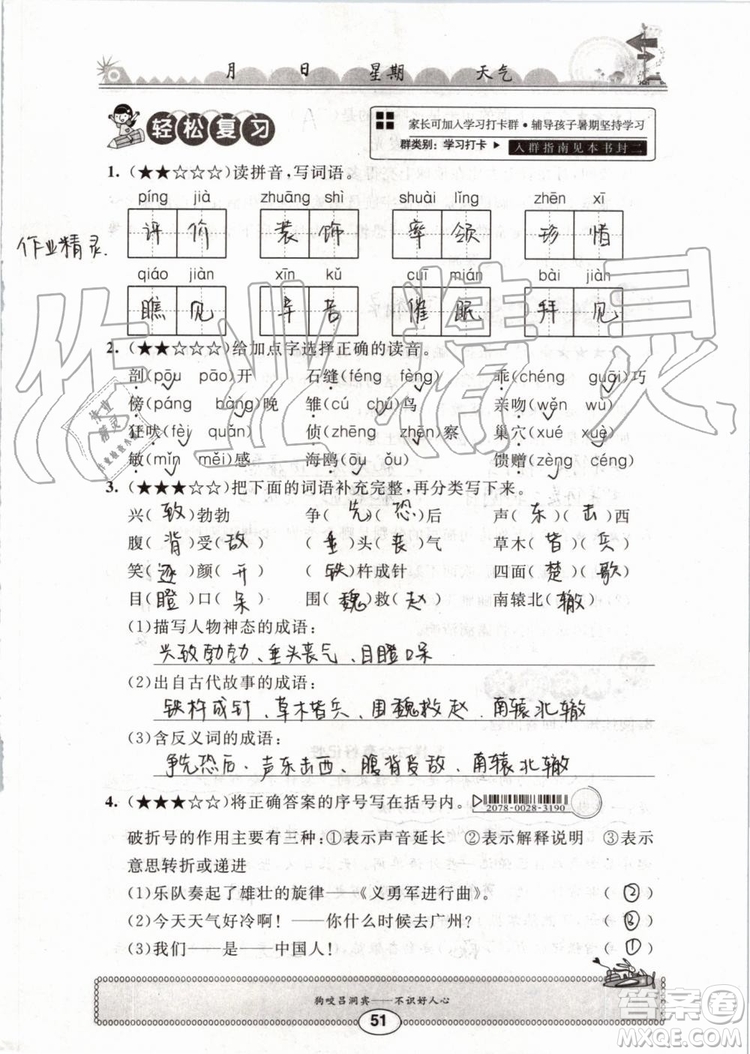 月 日 星期 天气
轻松复习
家长可加入学习打卡群·辅导孩子暑期坚持学习
群类别：学习打卡 入群指南见本书封二
1.(★★☆☆☆)读拼音,写词语。
píng jià zhuāng shì shuài lǐng zhēn xī
评价 装饰 率领 珍惜
作业精灵.
qiáo jiàn xīn kǔ cuī mián bài jiàn
瞧见 辛苦 催眠 拜见
2.(★★☆☆☆)给加点字选择正确的读音。
剖(pōu pāo)开 石缝(féng fèng) 乖(chéng guāi)巧
傍(páng bàng)晚 雏(cú chú)鸟 亲吻(wěn wù)
狂吠(fèi quǎn) 侦(zhēng zhēn)察 巢穴(xué xuè)
敏(mǐn měi)感 海鸥(ōu ǒu) 馈赠(zèng céng)
3.(★★★☆☆)把下面的词语补充完整,再分类写下来。
兴(致)勃勃 争(先)(恐)后 声(东)(击)西
腹(背)受(敌) (垂)头(丧)气 草木(皆)(兵)
笑(逐)颜(开) (铁)杵成针 四面(楚)(歌)
目(瞪)口(呆) 围(魏)救(赵) 南辕北(辙)
(1)描写人物神态的成语:
兴致勃勃、垂头丧气、目瞪口呆
(2)出自古代故事的成语:
铁杵成针、草木皆兵、围魏救赵、南辕北辙
(3)含反义词的成语:
争先恐后、声东击西、腹背受敌、南辕北辙
4.(★★★☆☆)将正确答案的序号写在括号内。
2078-0028-3190
破折号的作用主要有三种:①表示声音延长 ②表示解释说明 ③表示
意思转折或递进
(1)乐队奏起了雄壮的旋律——《义勇军进行曲》。 (②)
(2)今天天气好冷啊!——你什么时候去广州? (③)
(3)我们——是——中国人! (①)
狗咬吕洞宾——不识好人心
51
作业精灵
答案圈